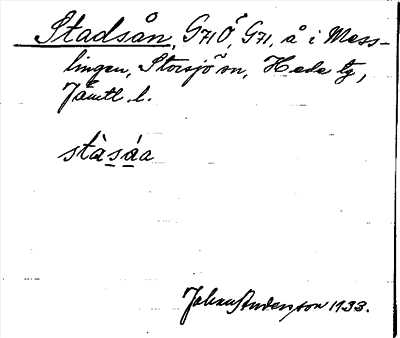 Stadsån, G71Ö, G71, å i Mess-
lingen, Storsjö sn, Hede tg,
Jämtl. l.
stàsáa
Johan Anderson 1933.